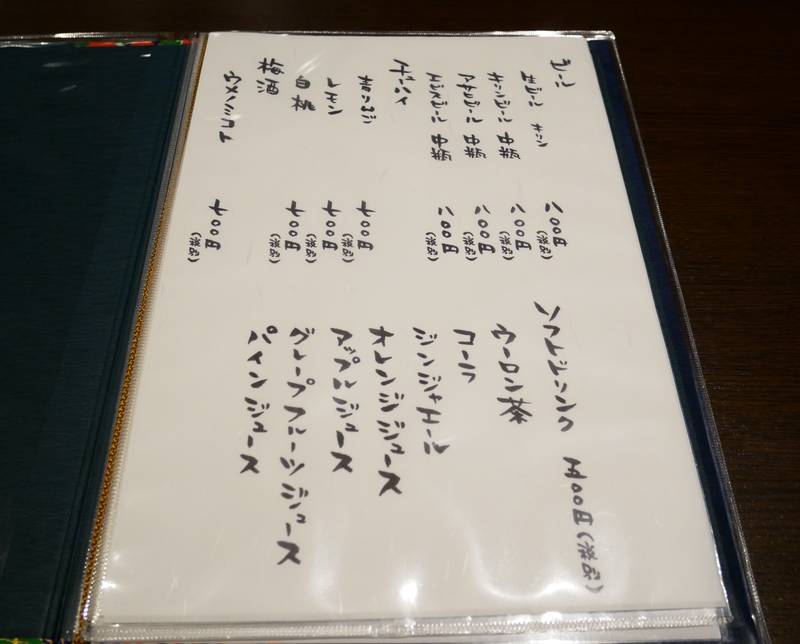 ビール
生ビール キリン 八〇〇円(税込)
キリンビール 中瓶 八〇〇円(税込)
アサヒビール 中瓶 八〇〇円(税込)
ヱビスビール 中瓶 八〇〇円(税込)
チューハイ
青リンゴ 七〇〇円(税込)
レモン 七〇〇円(税込)
白桃 七〇〇円(税込)
梅酒
ウメノミコト 七〇〇円(税込)
ソフトドリンク 五〇〇円(税込)
ウーロン茶
コーラ
ジンジャエール
オレンジジュース
アップルジュース
グレープフルーツジュース
パインジュース